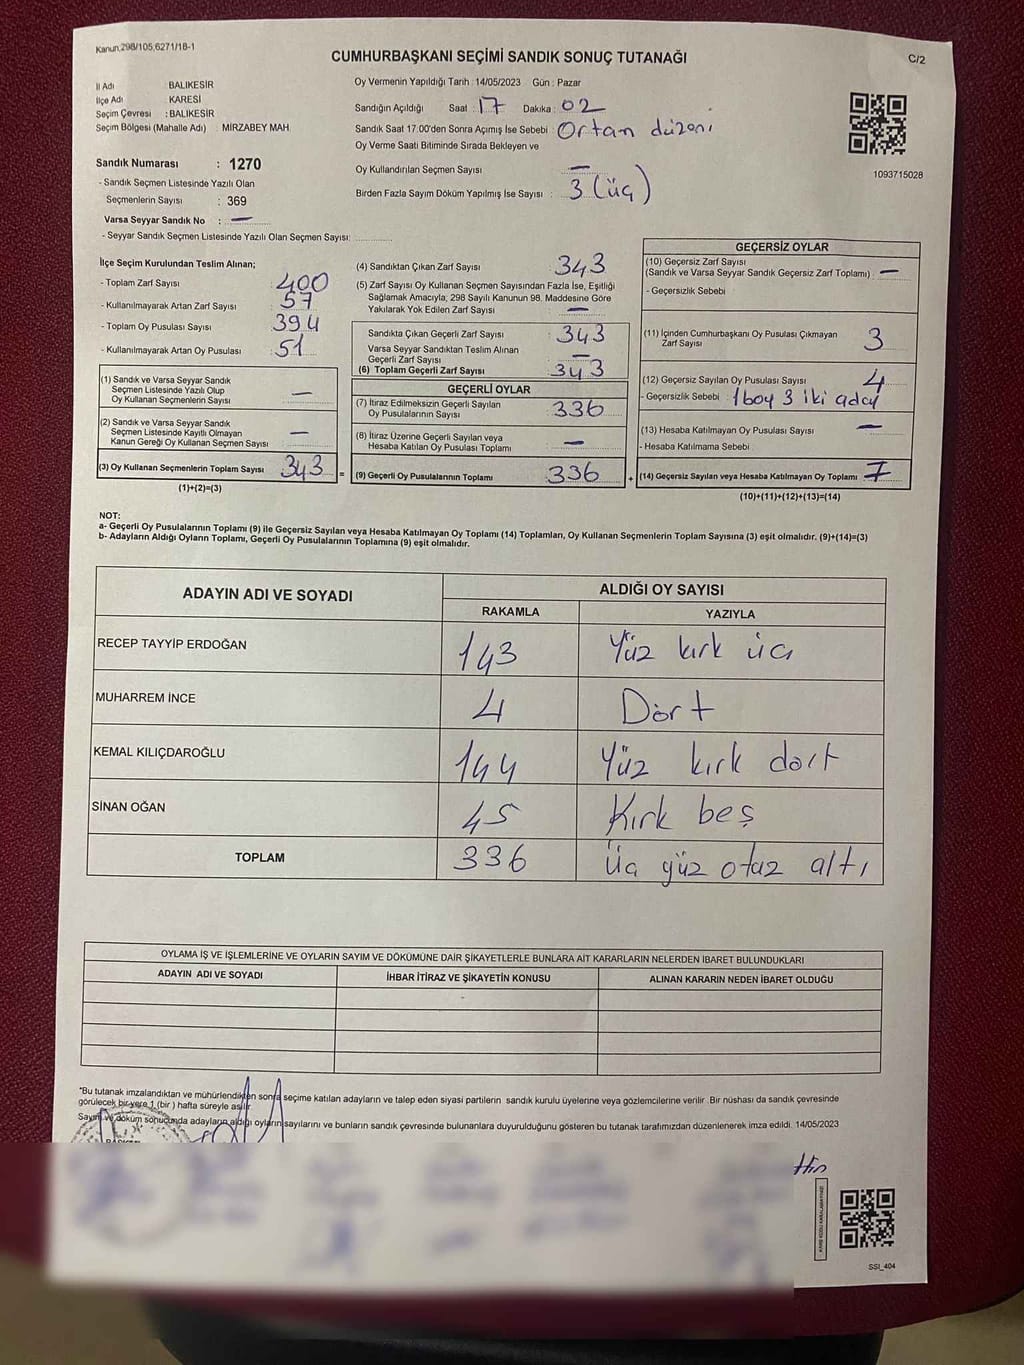 Kanun,298/105,6271/18-1
CUMHURBAŞKANI SEÇİMİ SANDIK SONUÇ TUTANAĞI
C/2
İl Adı : BALIKESİR
İlçe Adı : KARESİ
Seçim Çevresi : BALIKESİR
Seçim Bölgesi (Mahalle Adı) : MİRZABEY MAH.
Oy Vermenin Yapıldığı Tarih : 14/05/2023 Gün : Pazar
Sandığın Açıldığı Saat : 17 Dakika : 02
Sandık Saat 17:00'den Sonra Açımış İse Sebebi : Ortam düzeni
Oy Verme Saati Bitiminde Sırada Bekleyen ve
Oy Kullandırılan Seçmen Sayısı : —
Birden Fazla Sayım Döküm Yapılmış İse Sayısı : 3 (üç)
1093715028
Sandık Numarası : 1270
- Sandık Seçmen Listesinde Yazılı Olan
Seçmenlerin Sayısı : 369
Varsa Seyyar Sandık No : —
- Seyyar Sandık Seçmen Listesinde Yazılı Olan Seçmen Sayısı:
İlçe Seçim Kurulundan Teslim Alınan;
- Toplam Zarf Sayısı : 400
- Kullanılmayarak Artan Zarf Sayısı : 57
- Toplam Oy Pusulası Sayısı : 394
- Kullanılmayarak Artan Oy Pusulası : 51
(1) Sandık ve Varsa Seyyar Sandık
Seçmen Listesinde Yazılı Olup
Oy Kullanan Seçmenlerin Sayısı —
(2) Sandık ve Varsa Seyyar Sandık
Seçmen Listesinde Kayıtlı Olmayan
Kanun Gereği Oy Kullanan Seçmen Sayısı —
(3) Oy Kullanan Seçmenlerin Toplam Sayısı 343 =
(1)+(2)=(3)
(4) Sandıktan Çıkan Zarf Sayısı 343
(5) Zarf Sayısı Oy Kullanan Seçmen Sayısından Fazla İse, Eşitliği
Sağlamak Amacıyla; 298 Sayılı Kanunun 98. Maddesine Göre
Yakılarak Yok Edilen Zarf Sayısı —
Sandıkta Çıkan Geçerli Zarf Sayısı 343
Varsa Seyyar Sandıktan Teslim Alınan
Geçerli Zarf Sayısı —
(6) Toplam Geçerli Zarf Sayısı 343
GEÇERLİ OYLAR
(7) İtiraz Edilmeksizin Geçerli Sayılan
Oy Pusulalarının Sayısı 336
(8) İtiraz Üzerine Geçerli Sayılan veya
Hesaba Katılan Oy Pusulaları Toplamı —
(9) Geçerli Oy Pusulalarının Toplamı 336 +
GEÇERSİZ OYLAR
(10) Geçersiz Zarf Sayısı
(Sandık ve Varsa Seyyar Sandık Geçersiz Zarf Toplamı) : —
- Geçersizlik Sebebi :
(11) İçinden Cumhurbaşkanı Oy Pusulası Çıkmayan
Zarf Sayısı 3
(12) Geçersiz Sayılan Oy Pusulası Sayısı 4
- Geçersizlik Sebebi : 1 boş 3 iki aday
(13) Hesaba Katılmayan Oy Pusulası Sayısı —
- Hesaba Katılmama Sebebi :
(14) Geçersiz Sayılan veya Hesaba Katılmayan Oy Toplamı 7
(10)+(11)+(12)+(13)=(14)
NOT:
a- Geçerli Oy Pusulalarının Toplamı (9) ile Geçersiz Sayılan veya Hesaba Katılmayan Oy Toplamı (14) Toplamları, Oy Kullanan Seçmenlerin Toplam Sayısına (3) eşit olmalıdır. (9)+(14)=(3)
b- Adayların Aldığı Oyların Toplamı, Geçerli Oy Pusulalarının Toplamına (9) eşit olmalıdır.
ADAYIN ADI VE SOYADI
ALDIĞI OY SAYISI
RAKAMLA YAZIYLA
RECEP TAYYİP ERDOĞAN 143 Yüz kırk üç
MUHARREM İNCE 4 Dört
KEMAL KILIÇDAROĞLU 144 Yüz kırk dört
SİNAN OĞAN 45 Kırk beş
TOPLAM 336 üç yüz otuz altı
OYLAMA İŞ VE İŞLEMLERİNE VE OYLARIN SAYIM VE DÖKÜMÜNE DAİR ŞİKAYETLERLE BUNLARA AİT KARARLARIN NELERDEN İBARET BULUNDUKLARI
ADAYIN ADI VE SOYADI İHBAR İTİRAZ VE ŞİKAYETİN KONUSU ALINAN KARARIN NEDEN İBARET OLDUĞU
*Bu tutanak imzalandıktan ve mühürlendikten sonra seçime katılan adayların ve talep eden siyasi partilerin sandık kurulu üyelerine veya gözlemcilerine verilir .Bir nüshası da sandık çevresinde
görülecek bir yere 1 (bir ) hafta süreyle asılır.
Sayım ve döküm sonucunda adayların aldığı oyların sayılarını ve bunların sandık çevresinde bulunanlara duyurulduğunu gösteren bu tutanak tarafımızdan düzenlenerek imza edildi. 14/05/2023
SSI_404